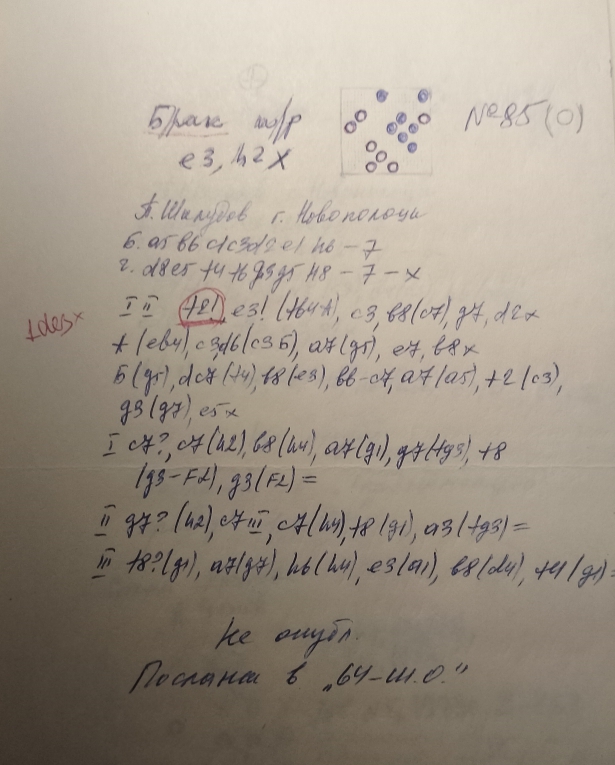 Брак т/р №85 (О)
е3, h2X
г. Новополоцк
Б. a5 b6 c1 c3 d2 e1 h6 – 7
Ч. d8 e5 f4 f6 g3 g5 h8 – 7 – x
I II f2!, e3! (fb4-A), c3, b8 (c7), g7, d2x
A (eb4), c3, d6 (c3Б), a7 (g5), e7, b8x
Б (g5), dc7 (f4), b8 (e3), b6-c7, a7 (a5), f2 (c3),
g3 (g7), e5x
I c7?, c7 (h2), b8 (h4), a7 (g1), g7 (fg3), f8
(g3-F2), g3 (F2) =
II g7? (h2), c7 III, c7 (h4), f8 (g1), a3 (fg3) =
III f8? (g1), a7 (g7), h6 (h4), e3 (a1), b8 (d4), f4 (g1) =
Не опубл.
Послана в „64-Ш.О."